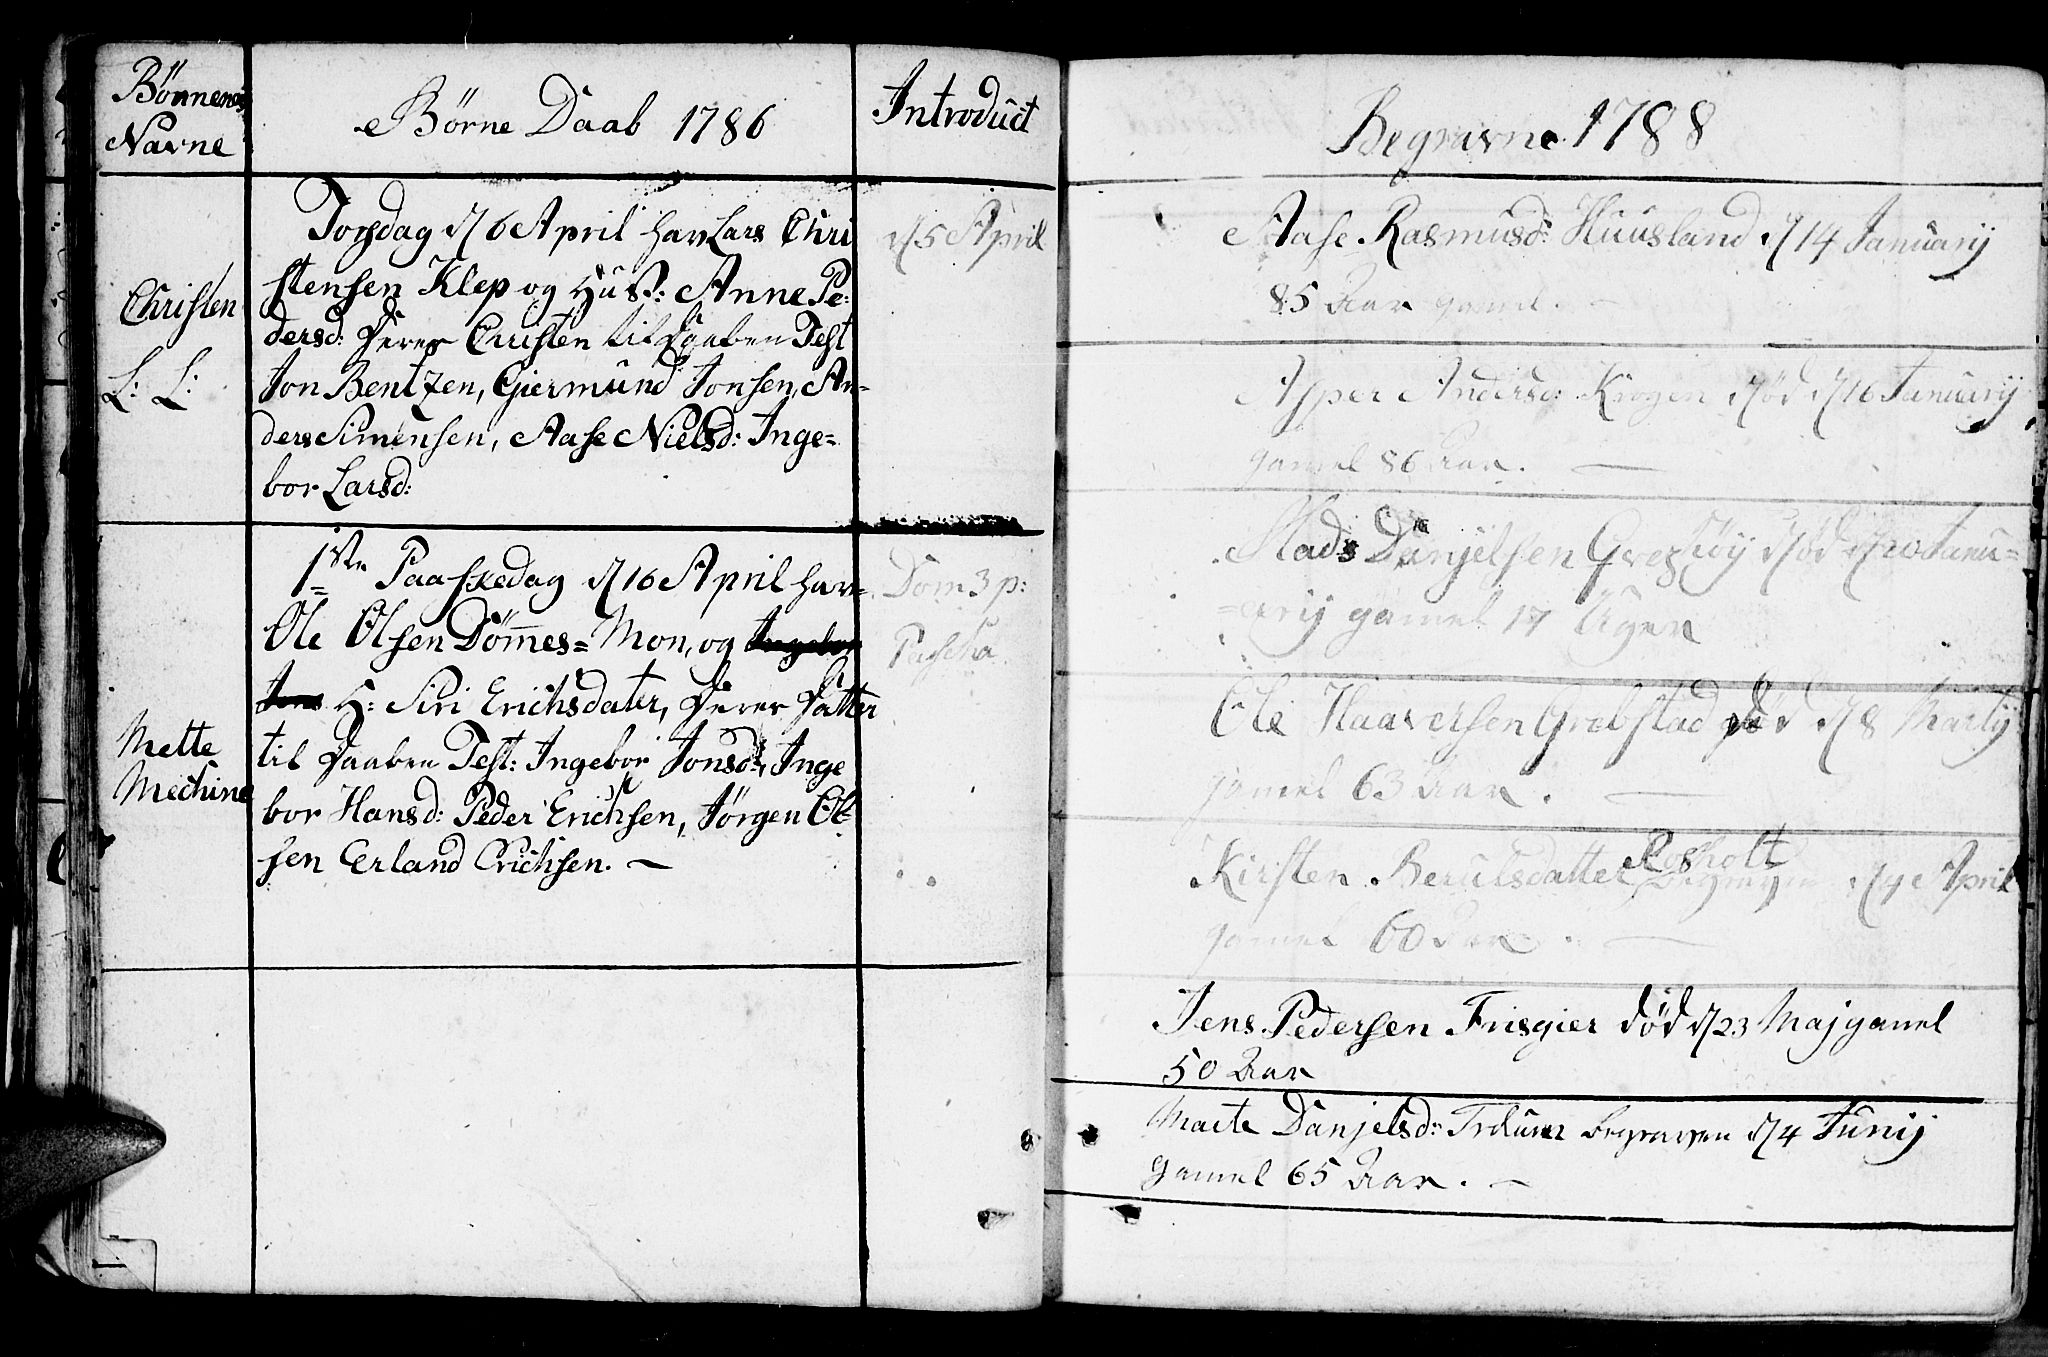 Børnenes
Navne
Børne Daab 1786
Introduct
Christen
L: L:
Torsdag d/ 6 April har Lars Chri
stensen Klep og Hus: Anne Pe:
dersd: Deres Christen til Daaben Test
Jon Bentzen, Giermund Jonsen, An-
ders Simensen, Aase Nielsd: Inge=
bor Larsd:
d/ 5 April
Mette
Mechine
1ste Paaskedag d/ 16 April har
Ole Olsen Dömmes= Mon, og Ingebor
Jons H: Siri Erichsdater, Deres Datter
til Daaben Test: Ingebor Jonsd:, Inge
bor Hansd: Peder Erichsen, Jørgen Ol
sen Erland Erichsen. —
Dom 3 p:
Pascha
Begravne 1788
Aase Rasmusd: Huusland d/ 14 Januarij
85 Aar gamel. —
Asper Andersd: Krogen død d/ 16 Januarij
gamel 86 Aar. —
Mads Danjelsen død d/ 20 Janu=
=arij gamel 17 Uger
Ole Haaversen Grebstad død d/ 8 Martij
gamel 63 Aar. —
Kirsten Berulsdatter Rosholt begraven d/ 4 April
gamel 60 Aar. —
Jens Pedersen Frisgier død d/ 23 Maj gamel
50 Aar
Marte Danjelsd: begraven d/ 4 Junij
gamel 65 Aar. —